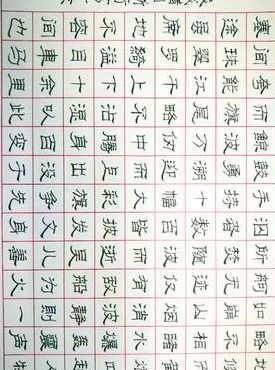 略不相睹水爆轰震声
如崩山烟消波静則一
舸无迹仅有敌船为火
所焚随波而逝吴儿善
泅者数百皆披发文身
手持十幅大彩旗争先
鼓勇溯迎而上出没于
鲸波万仞中腾身百变
而旗尾略不沾湿以此
夸能江干上下十余里
间珠翠罗绮溢目车马
塞途虽席地不容间也